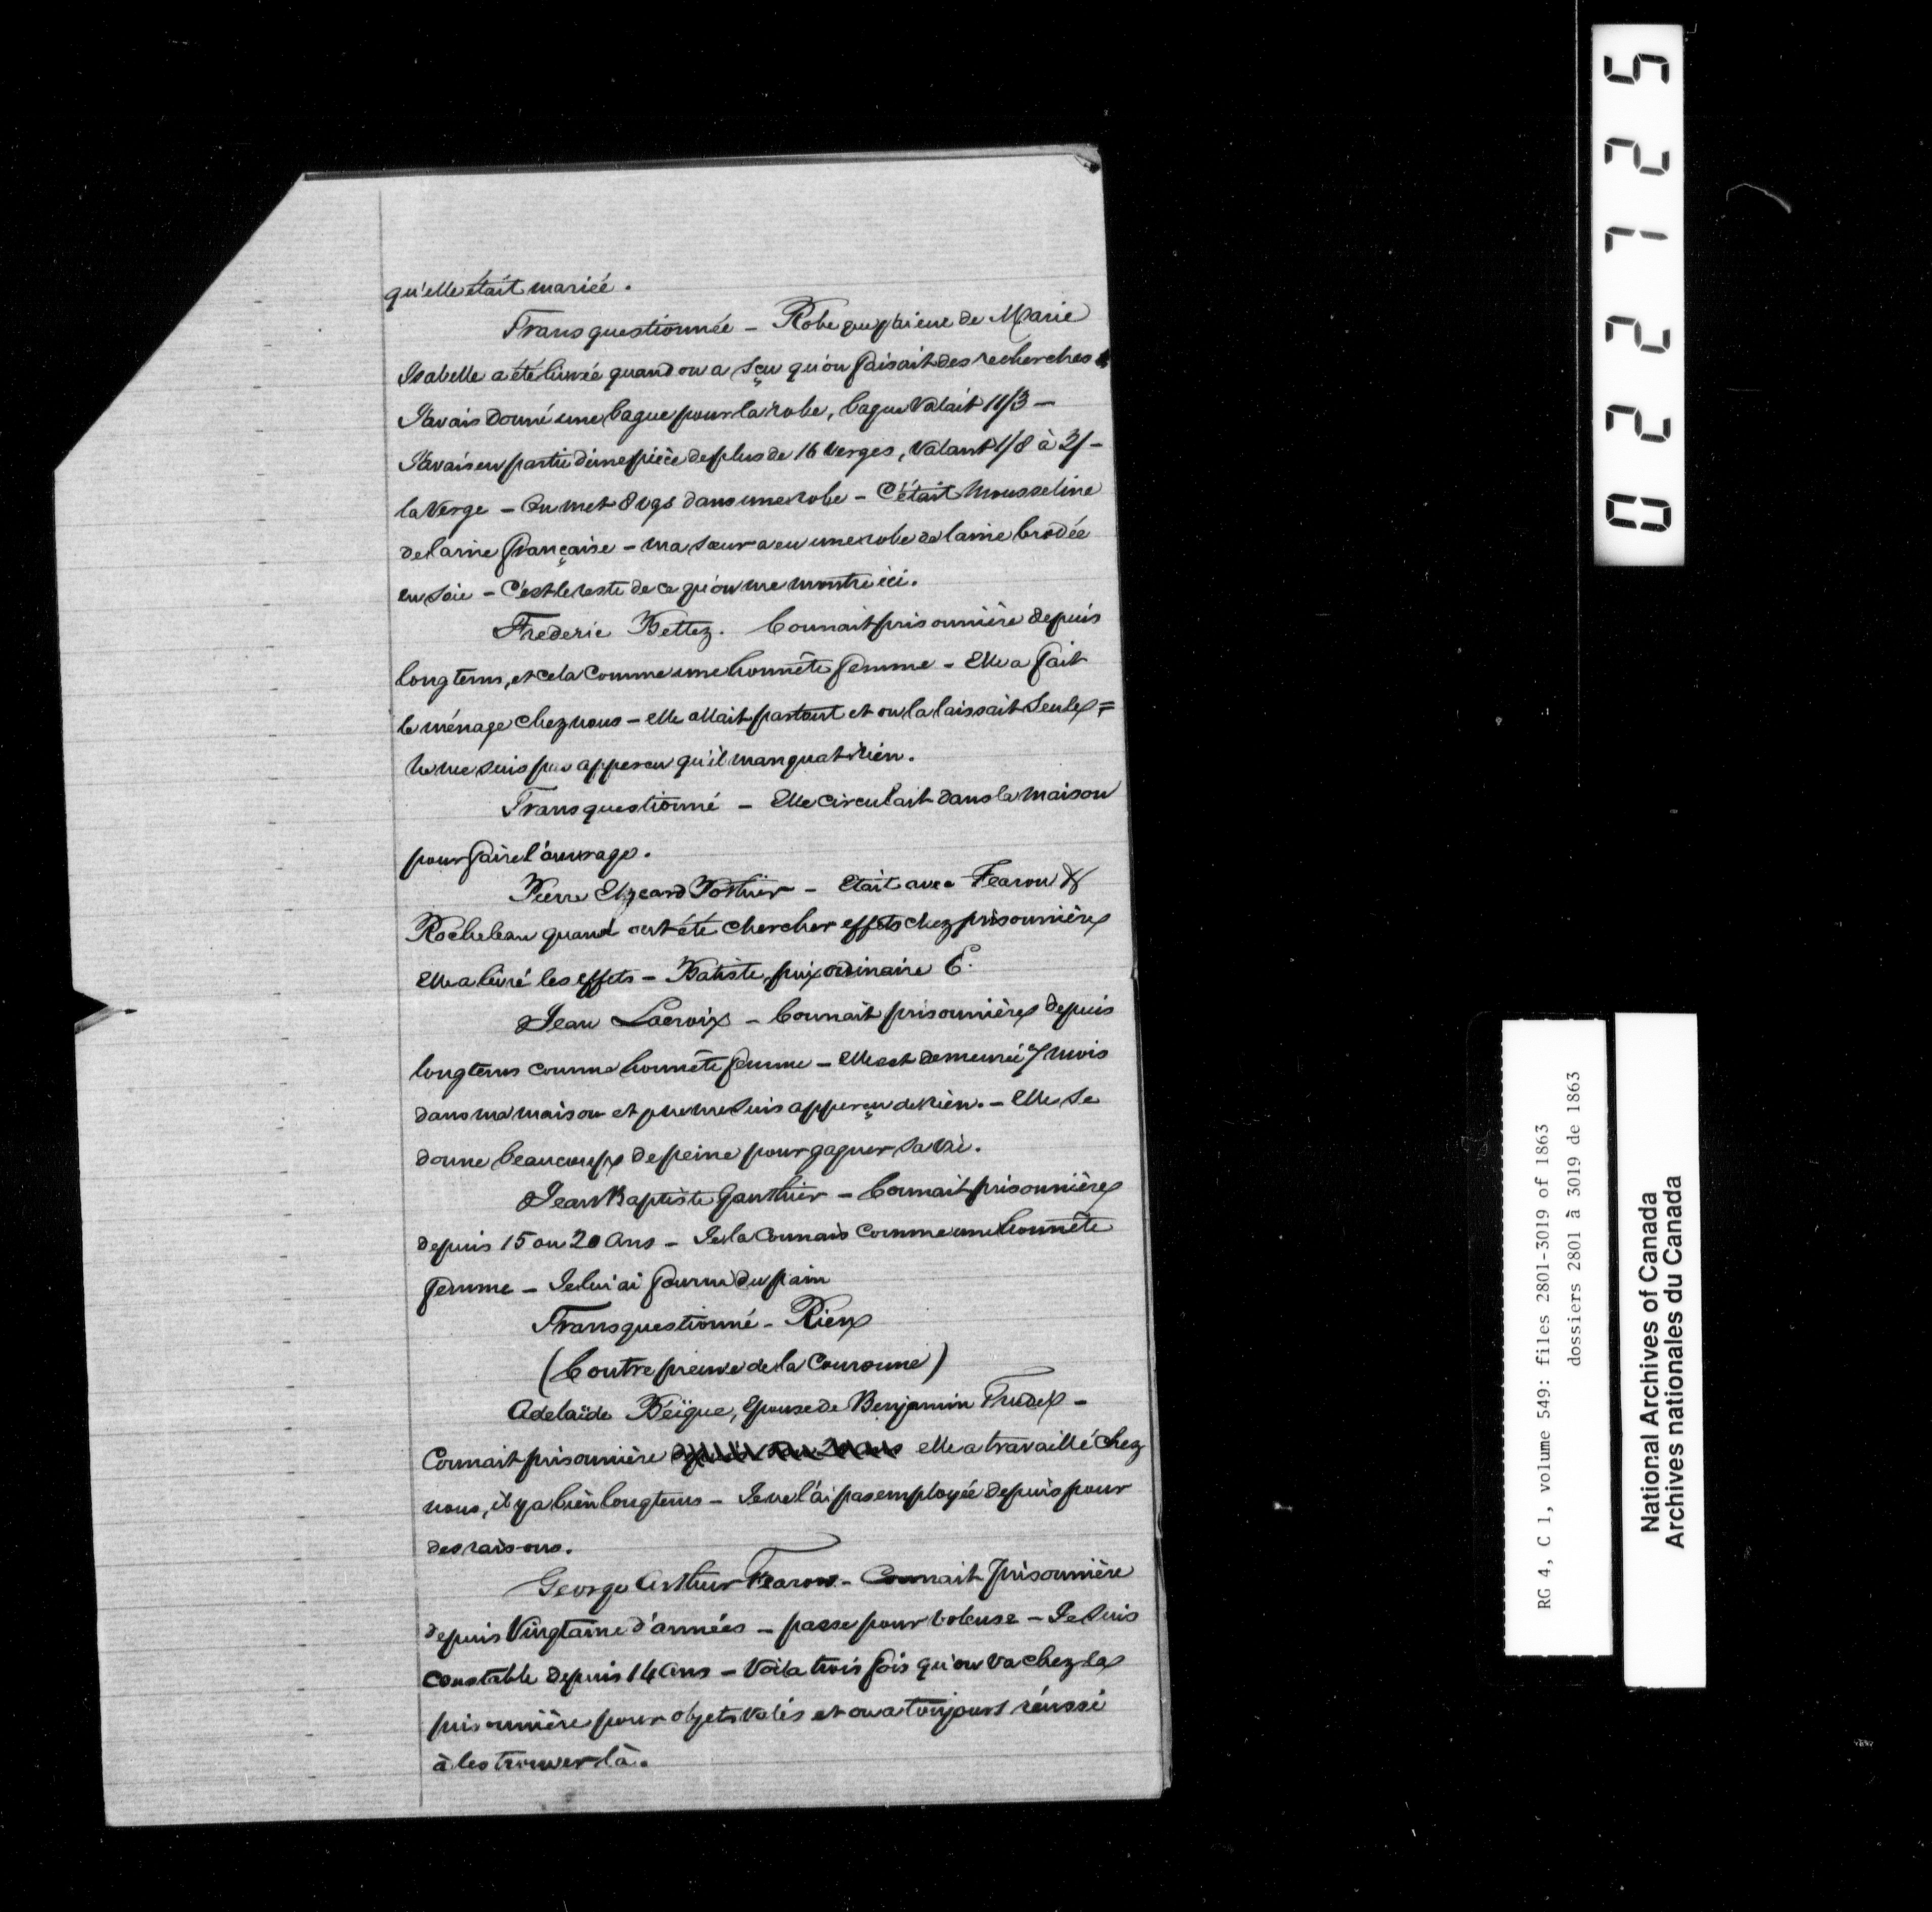 qu'elle était mariée.
Transquestionnée – Robe que j'ai eue de Marie
Isabelle a été livrée quand on a sçu qu'on faisait des recherches
J'avais donné une bague pour la robe, bague valait 11/3 –
J'avais eu partie d'une pièce de plus de 16 verges, valant 1/8 à 3/–
la verge – On met 8 vgs dans une robe – C'était mousseline
de laine française – ma sœur a eu une robe de laine brodée
en soie – C'est le reste de ce qu'on me montre ici.
Frederic Bettez. Connait prisonnière depuis
longtems, et cela comme une honnête femme – Elle a fait
le ménage chez nous – elle allait partout et on la laissait seule =
ne me suis pas apperçu qu'il manquat rien.
Transquestionné – Elle circulait dans la maison
pour faire l'ouvrage.
Pierre Elzeard Pothier – Etait avec Fearon &
Rocheleau quand ont été chercher effets chez prisonnière
Elle a livré les effets – Batiste, prix ordinaire
Jean Lacroix – Connait prisonnière depuis
longtems comme honnête femme – Elle est demeurée 7 mois
dans ma maison et je ne me suis apperçu de rien. – Elle se
donne beaucoup de peine pour gagner sa vie.
Jean Baptiste Gauthier – Connait prisonnière
depuis 15 ou 20 ans – Je la connais comme une honnête
femme – Je lui ai fourni du pain
Transquestionné – Rien
(Contre preuve de la Couronne)
Adelaïde Béïque, Epouse de Benjamin Trudel –
Connait prisonnière elle a travaillé chez
nous, il y a bien longtems – Je ne l'ai pas employée depuis pour
des raisons.
George Arthur Fearon – Connait prisonnière
depuis Vingtaine d'années – passe pour voleuse – Je suis
constable depuis 14 ans – Voila trois fois qu'on va chez la
prisonnière pour objets volés et on a toujours réussi
à les trouver là.
022725
RG 4, C 1, volume 549: files 2801-3019 of 1863
dossiers 2801 à 3019 de 1863
National Archives of Canada
Archives nationales du Canada